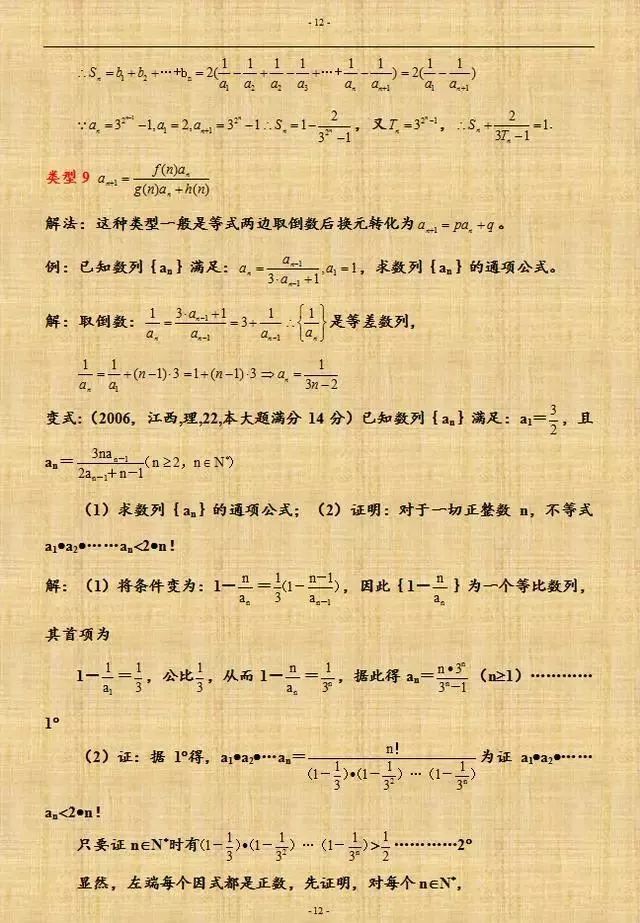 - 12 -
∴S_n=b_1+b_2+…+b_n=2(1/a_1-1/a_2+1/a_2-1/a_3+…+1/a_n-1/a_{n+1})=2(1/a_1-1/a_{n+1})
∵a_n=3^{2^{n-1}}-1,a_1=2,a_{n+1}=3^{2^n}-1∴S_n=1-2/(3^{2^n}-1)，又T_n=3^{2^n-1}，∴S_n+2/(3T_n-1)=1.
类型9 a_{n+1}=f(n)a_n/(g(n)a_n+h(n))
解法：这种类型一般是等式两边取倒数后换元转化为a_{n+1}=pa_n+q。
例：已知数列｛a_n｝满足：a_n=a_{n-1}/(3·a_{n-1}+1),a_1=1，求数列｛a_n｝的通项公式。
解：取倒数：1/a_n=(3·a_{n-1}+1)/a_{n-1}=3+1/a_{n-1} ∴{1/a_n}是等差数列，
1/a_n=1/a_1+(n-1)·3=1+(n-1)·3⇒a_n=1/(3n-2)
变式：（2006，江西,理,22,本大题满分 14 分）已知数列｛a_n｝满足：a_1＝3/2，且
a_n＝3na_{n-1}/(2a_{n-1}+n-1)(n≥2，n∈N*)
（1）求数列｛a_n｝的通项公式；（2）证明：对于一切正整数 n，不等式
a_1•a_2•……a_n<2•n！
解：（1）将条件变为：1－n/a_n＝1/3(1-(n-1)/a_{n-1})，因此｛1－n/a_n｝为一个等比数列，
其首项为
1－1/a_1＝1/3，公比1/3，从而 1－n/a_n＝1/3^n，据此得 a_n＝n•3^n/(3^n-1)（n≥1）…………
1°
（2）证：据 1°得，a_1•a_2•…a_n＝n！/((1-1/3)•(1-1/3^2) … (1-1/3^n))为证 a_1•a_2•……
a_n<2•n！
只要证 n∈N*时有(1-1/3)•(1-1/3^2) … (1-1/3^n)>1/2…………2°
显然，左端每个因式都是正数，先证明，对每个 n∈N*，
- 12 -